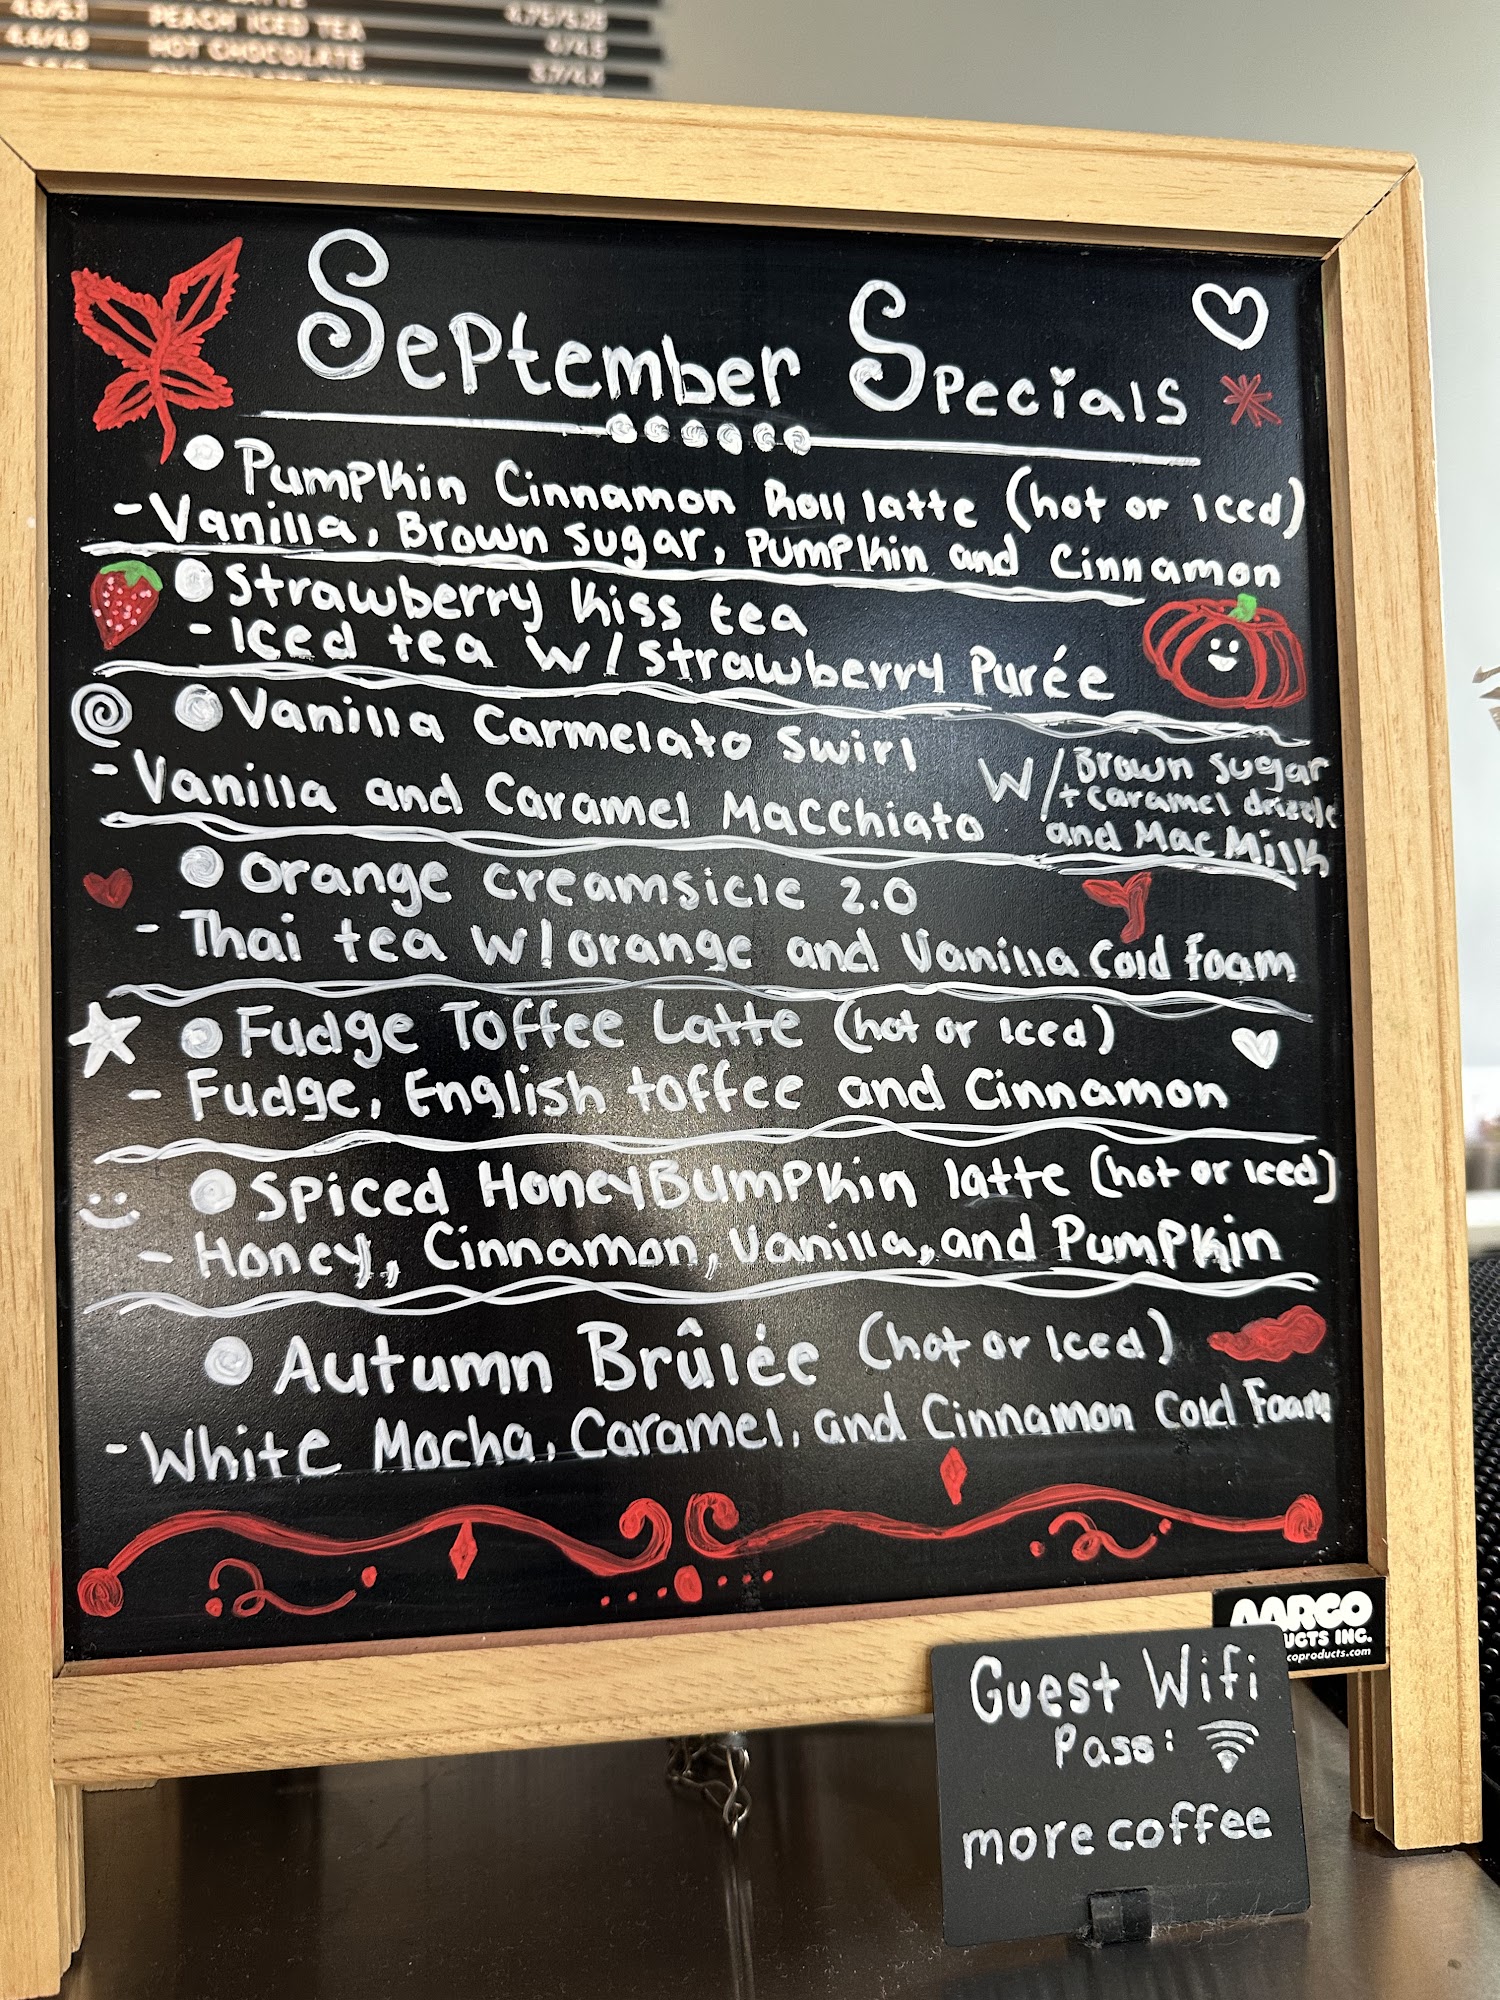 4.6/5.1 PEACH ICED TEA 4.75/5.25
4.4/4.9 HOT CHOCOLATE 4/4.5
3.9/4.4
September Specials
Pumpkin Cinnamon Roll latte (hot or Iced)
- Vanilla, Brown sugar, Pumpkin and Cinnamon
Strawberry Kiss tea
- Iced tea w/strawberry Purée
Vanilla Carmelato Swirl
- Vanilla and Caramel Macchiato w/Brown sugar
+ caramel drizzle
and Mac Milk
Orange Creamsicle 2.0
- Thai tea w/orange and Vanilla Cold foam
Fudge Toffee Latte (hot or Iced)
- Fudge, English toffee and Cinnamon
Spiced HoneyBumpkin latte (hot or Iced)
- Honey, Cinnamon, Vanilla, and Pumpkin
Autumn Brûlée (hot or Iced)
- White Mocha, Caramel, and Cinnamon Cold Foam
AARCO
UCTS INC.
coproducts.com
Guest Wifi
Pass:
more coffee